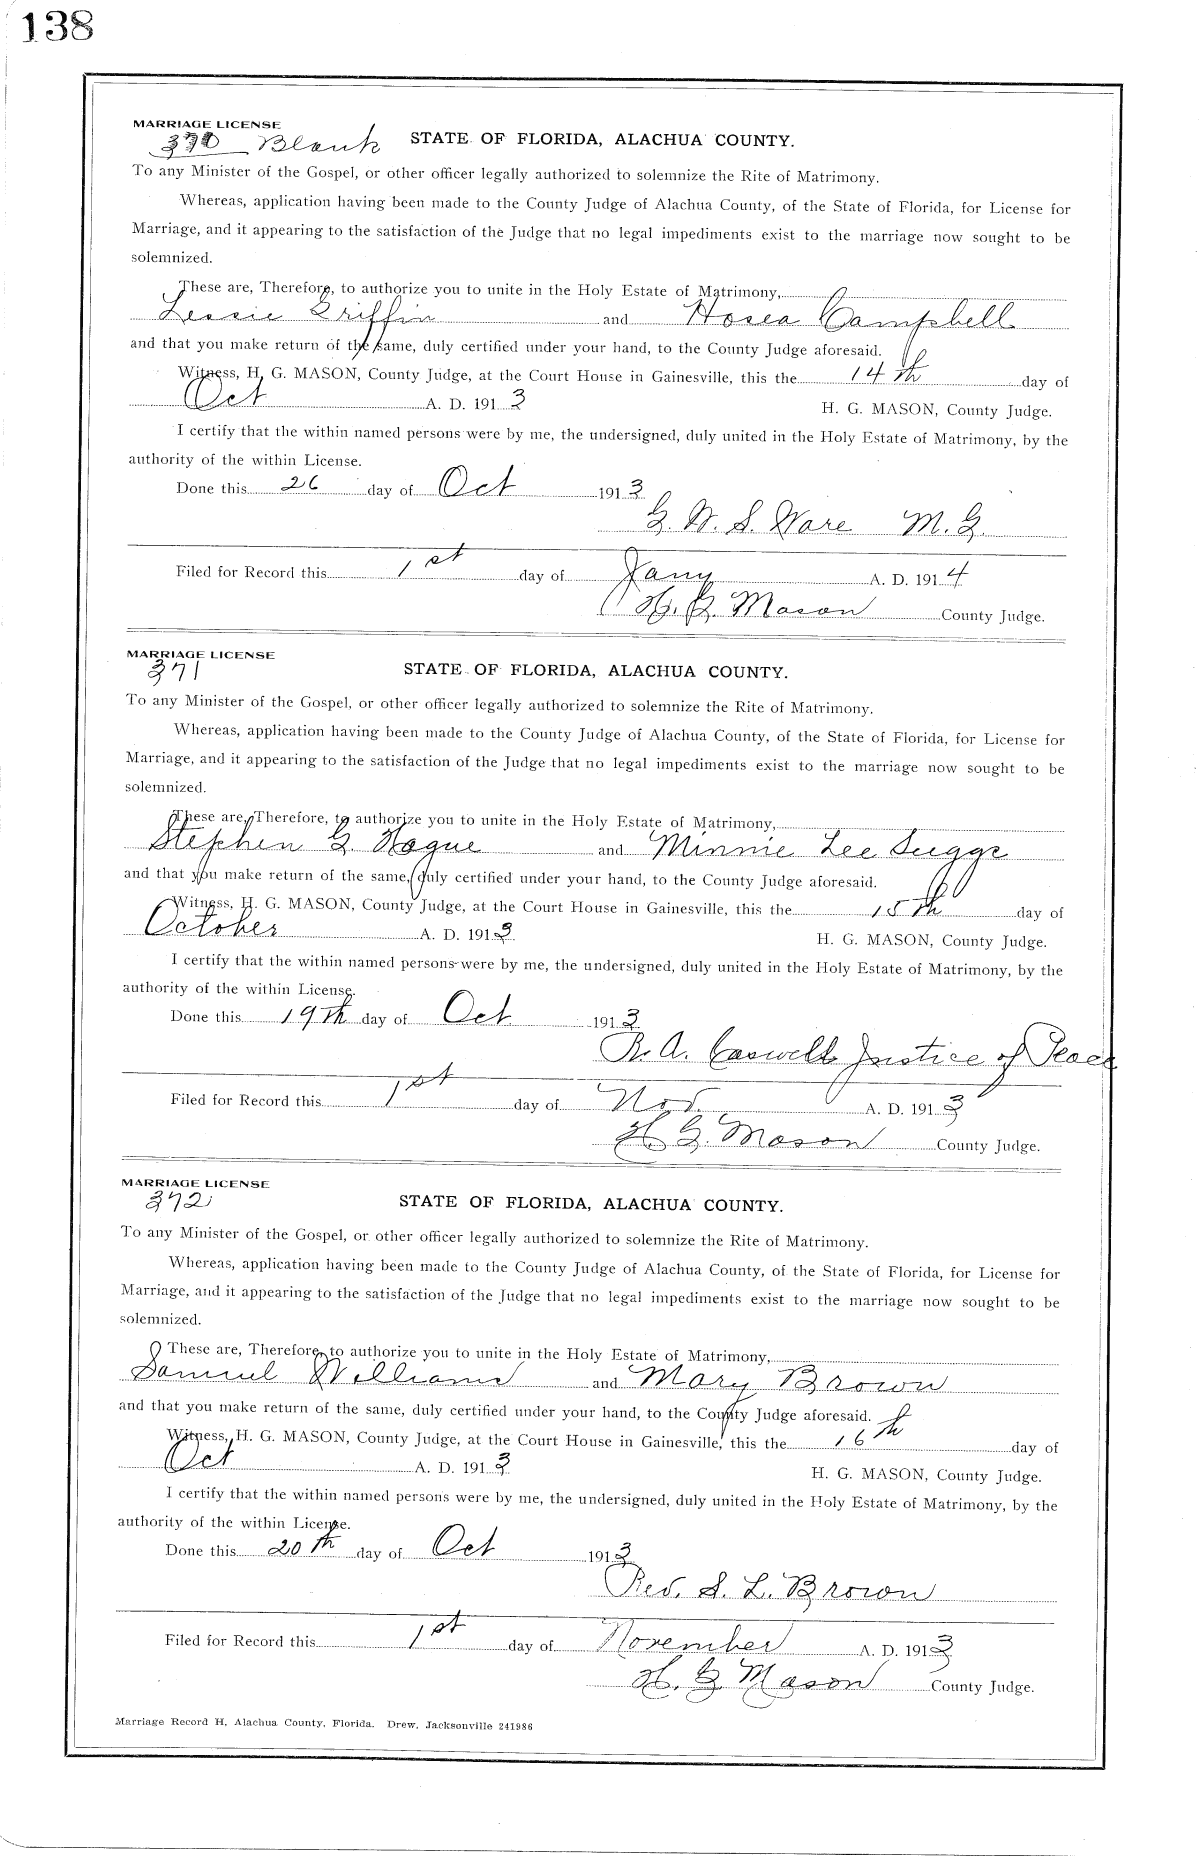 138
MARRIAGE LICENSE
370 Blank STATE OF FLORIDA, ALACHUA COUNTY.
To any Minister of the Gospel, or other officer legally authorized to solemnize the Rite of Matrimony.
Whereas, application having been made to the County Judge of Alachua County, of the State of Florida, for License for
Marriage, and it appearing to the satisfaction of the Judge that no legal impediments exist to the marriage now sought to be
solemnized.
These are, Therefore, to authorize you to unite in the Holy Estate of Matrimony,
Lessie Griffin and Hosea Campbell
and that you make return of the same, duly certified under your hand, to the County Judge aforesaid.
Witness, H. G. MASON, County Judge, at the Court House in Gainesville, this the 14th day of
Oct A. D. 1913 H. G. MASON, County Judge.
I certify that the within named persons were by me, the undersigned, duly united in the Holy Estate of Matrimony, by the
authority of the within License.
Done this 26 day of Oct 1913
G. W. S. Ware M. G.
Filed for Record this 1st day of Jany A. D. 1914
H. G. Mason County Judge.
MARRIAGE LICENSE
371 STATE OF FLORIDA, ALACHUA COUNTY.
To any Minister of the Gospel, or other officer legally authorized to solemnize the Rite of Matrimony.
Whereas, application having been made to the County Judge of Alachua County, of the State of Florida, for License for
Marriage, and it appearing to the satisfaction of the Judge that no legal impediments exist to the marriage now sought to be
solemnized.
These are, Therefore, to authorize you to unite in the Holy Estate of Matrimony,
Stephen G. Hogue and Minnie Lee Suggs
and that you make return of the same, duly certified under your hand, to the County Judge aforesaid.
Witness, H. G. MASON, County Judge, at the Court House in Gainesville, this the 15th day of
October A. D. 1913 H. G. MASON, County Judge.
I certify that the within named persons were by me, the undersigned, duly united in the Holy Estate of Matrimony, by the
authority of the within License.
Done this 19th day of Oct 1913
R. A. Caswell Justice of Peace
Filed for Record this 1st day of Nov. A. D. 1913
H G. Mason County Judge.
MARRIAGE LICENSE
372 STATE OF FLORIDA, ALACHUA COUNTY.
To any Minister of the Gospel, or other officer legally authorized to solemnize the Rite of Matrimony.
Whereas, application having been made to the County Judge of Alachua County, of the State of Florida, for License for
Marriage, and it appearing to the satisfaction of the Judge that no legal impediments exist to the marriage now sought to be
solemnized.
These are, Therefore, to authorize you to unite in the Holy Estate of Matrimony,
Samuel Williams and Mary Brown
and that you make return of the same, duly certified under your hand, to the County Judge aforesaid.
Witness, H. G. MASON, County Judge, at the Court House in Gainesville, this the 16th day of
Oct A. D. 1913 H. G. MASON, County Judge.
I certify that the within named persons were by me, the undersigned, duly united in the Holy Estate of Matrimony, by the
authority of the within License.
Done this 20th day of Oct 1913
Rev. S. L. Brown
Filed for Record this 1st day of November A. D. 1913
H. G Mason County Judge.
Marriage Record H, Alachua County, Florida. Drew, Jacksonville 241986